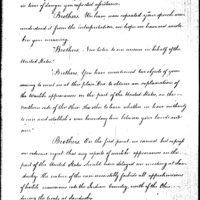 in time of danger you expected assistance.
Brothers. We have now repeated your speech as we
understood it from the interpretation, we hope we have not mista-
ken your meaning.
Brothers. Now listen to our answer in behalf of the
United States.
Brothers. You have mentioned two objects of your
coming to meet us at this place. One to obtain an explanation of
the Warlike appearances on the part of the United States, on the
northern side of the Ohio; the other to learn whether we have authority
to run and establish a new boundary line between your lands and
ours.
Brothers. On the first point we cannot but express
our extreme regret that any reports of warlike appearances on the
part of the United States should have delayed our meeting at San-
dusky. The nature of the case irresistibly forbids all apprehensions
of hostile incursions into the Indian country north of the Ohio
during the treaty at Sandusky.